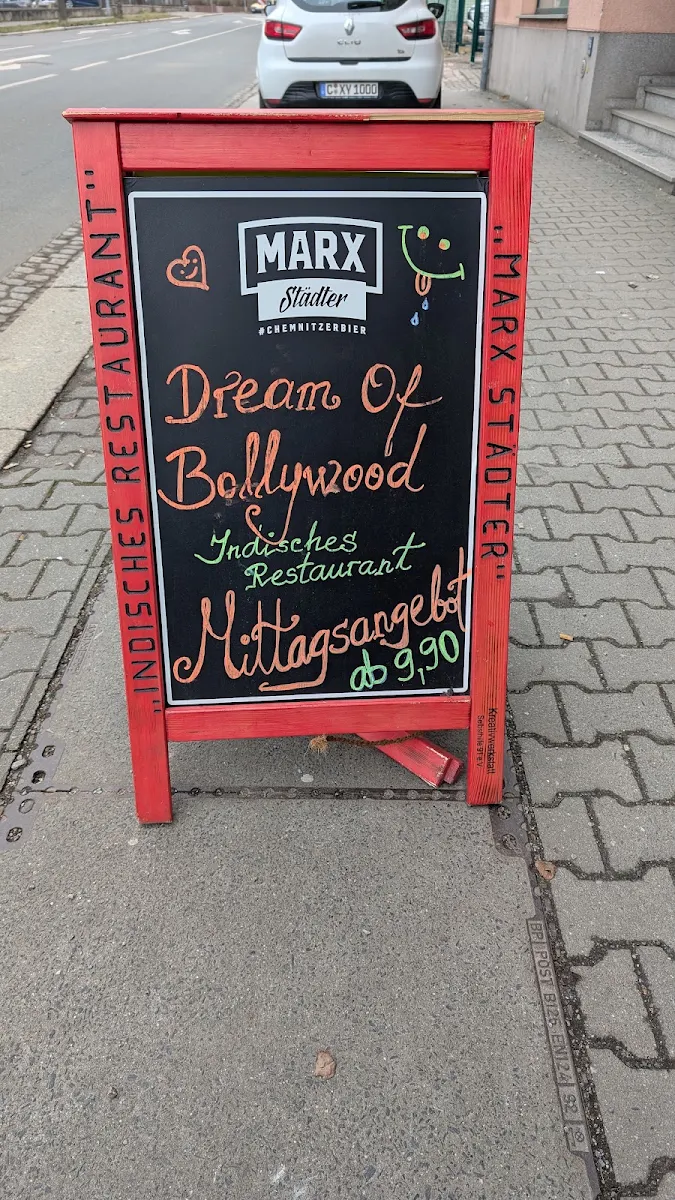 CLIO
C XY 1000
„INDISCHES RESTAURANT"
MARX
Städter
#CHEMNITZERBIER
Dream Of
Bollywood
Indisches
Restaurant
Mittagsangebot
ab 9,90
„MARX STÄDTER"
Kreativwerkstatt